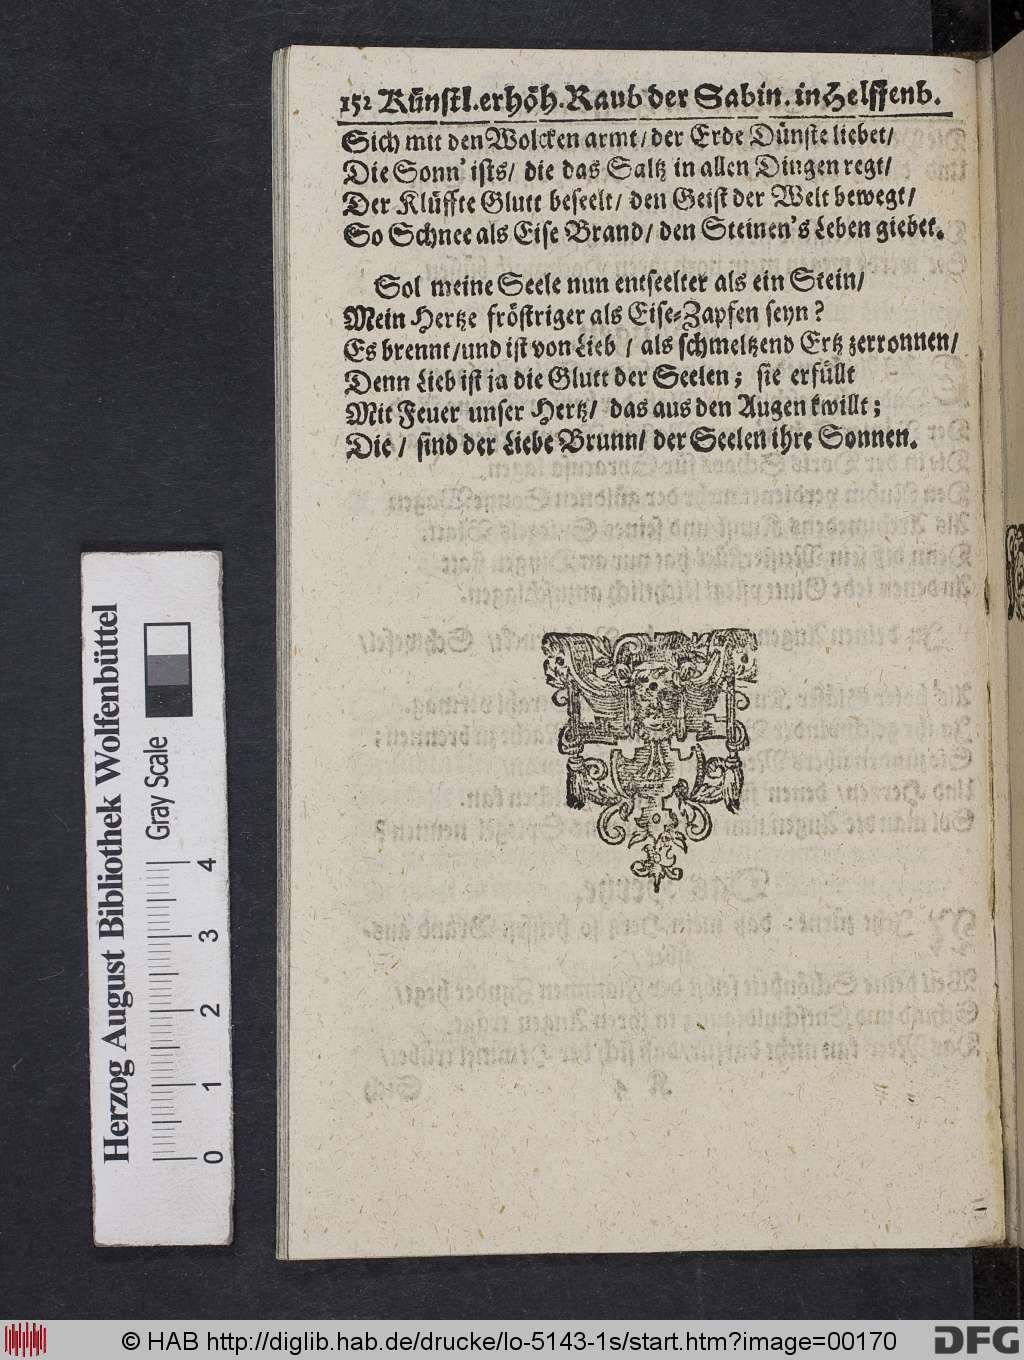 152 Künstl. erhöh. Raub der Sabin. in Helffenb.
Sich mit den Wolcken armt/ der Erde Dünste liebet/
Die Sonn' ists/ die das Saltz in allen Dingen regt/
Der Klüffte Glutt beseelt/ den Geist der Welt bewegt/
So Schnee als Eise Brand/ den Steinen's Leben giebet.
Sol meine Seele nun entseelter als ein Stein/
Mein Hertze fröstriger als Eise-Zapfen seyn?
Es brennt/und ist von Lieb / als schmeltzend Ertz zerronnen/
Denn Lieb ist ja die Glutt der Seelen; sie erfüllt
Mit Feuer unser Hertz/ das aus den Augen kwillt;
Die/ sind der Liebe Brunn/ der Seelen ihre Sonnen.
Herzog August Bibliothek Wolfenbüttel
Gray Scale
0 1 2 3 4
© HAB http://diglib.hab.de/drucke/lo-5143-1s/start.htm?image=00170
DFG